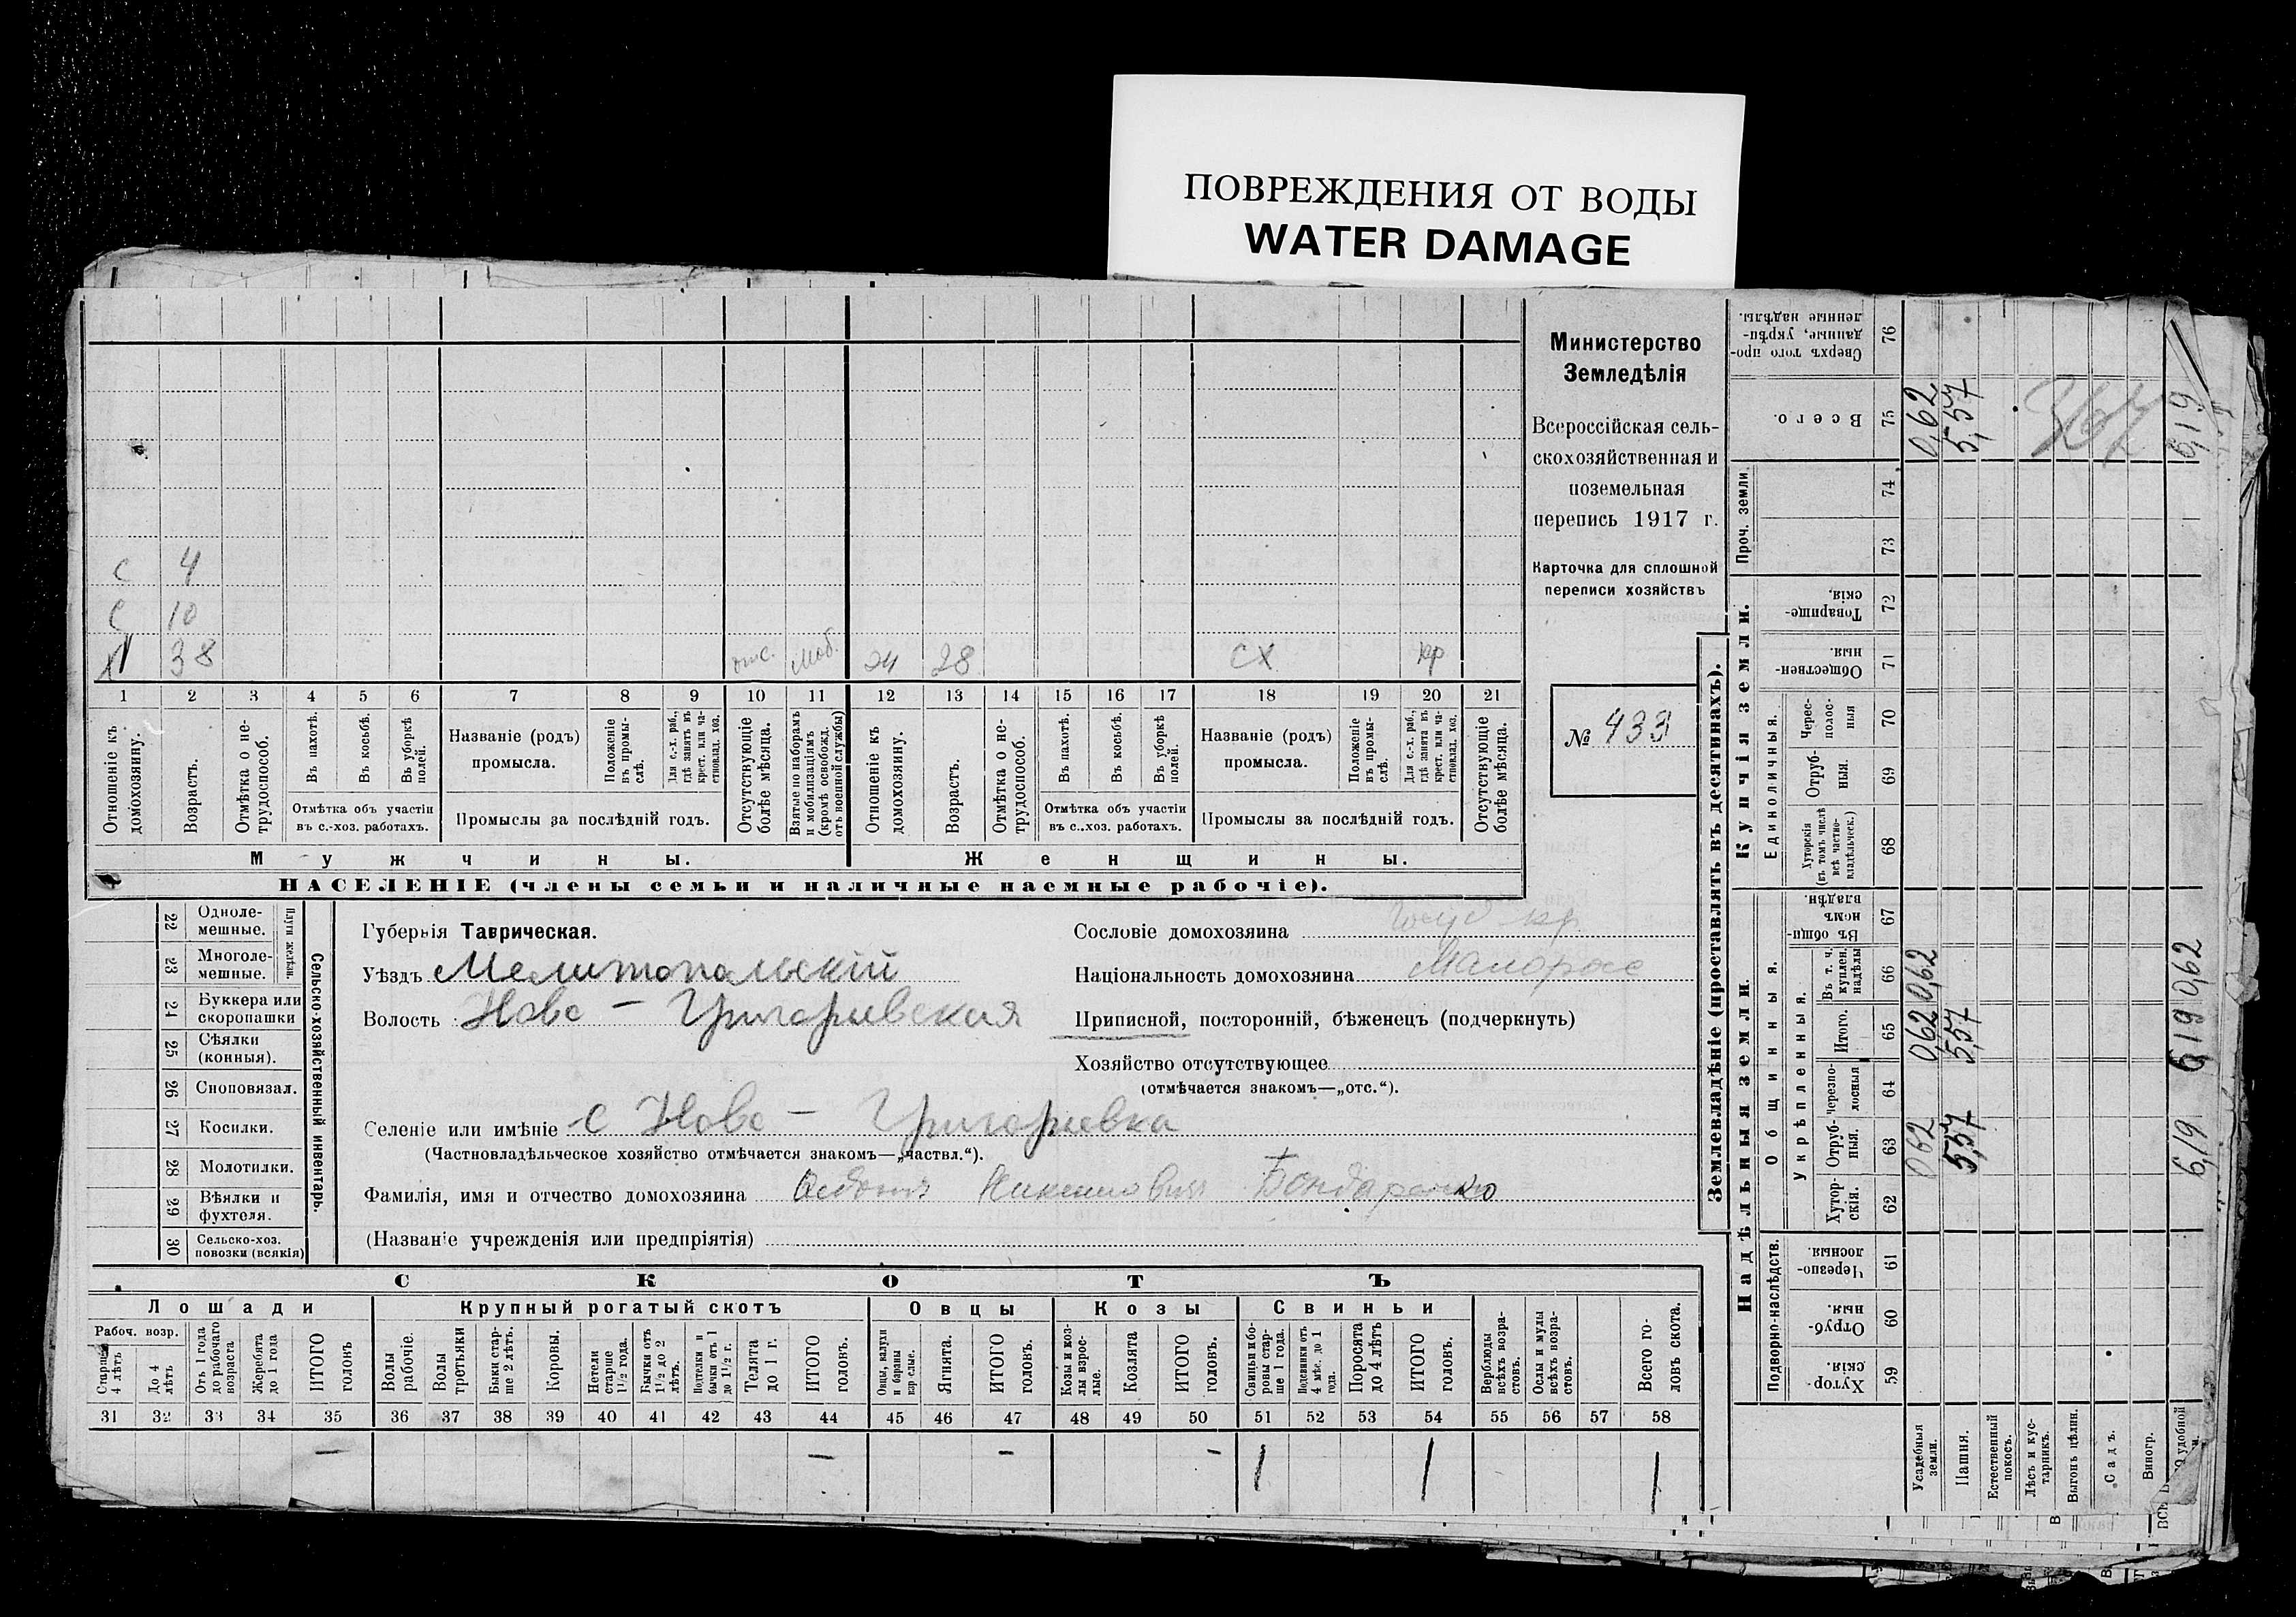 ПОВРЕЖДЕНИЯ ОТ ВОДЫ
WATER DAMAGE
Министерство
Земледѣлія
Всероссійская сель-
скохозяйственная и
поземельная
перепись 1917 г.
Карточка для сплошной
переписи хозяйствъ
№ 433
с 4
с 10
х 38 отс. моб. ж 28 сх кр
1 2 3 4 5 6 7 8 9 10 11 12 13 14 15 16 17 18 19 20 21
Отношеніе къ домохозяину.
Возрастъ.
Отмѣтка о не-трудоспособ.
Въ пахотѣ.
Въ косьбѣ.
Въ уборкѣ полей.
Отмѣтка объ участіи
въ с.-хоз. работахъ.
Названіе (родъ)
промысла.
Положеніе въ промы-слѣ.
Для с.-х. раб., гдѣ занятъ въ крест. или ча-стновлад. хоз.
Промыслы за послѣдній годъ.
Отсутствующіе болѣе мѣсяца.
Взятые по наборамъ и мобилизаціямъ (кромѣ освобожд. отъ военной службы)
Отношеніе къ домохозяину.
Возрастъ.
Отмѣтка о не-трудоспособ.
Въ пахотѣ.
Въ косьбѣ.
Въ уборкѣ полей.
Отмѣтка объ участіи
въ с.-хоз. работахъ.
Названіе (родъ)
промысла.
Положеніе въ промы-слѣ.
Для с.-х. раб., гдѣ занята въ крест. или ча-стновлад. хоз.
Промыслы за послѣдній годъ.
Отсутствующіе болѣе мѣсяца.
Мужчины. Женщины.
НАСЕЛЕНІЕ (члены семьи и наличные наемные рабочіе).
Сельско-хозяйственный инвентарь.
Плуги желѣзн.
22 Одноле-мешные.
23 Многоле-мешные.
24 Буккера или скоропашки
25 Сѣялки (конныя).
26 Сноповязал.
27 Косилки.
28 Молотилки.
29 Вѣялки и фухтеля.
30 Сельско-хоз. повозки (всякія)
Губернія Таврическая.
Уѣздъ Мелитопольскій
Волость Ново-Григорьевская
Сословіе домохозяина кр.
Національность домохозяина Малоросс
Приписной, посторонній, бѣженецъ (подчеркнуть)
Хозяйство отсутствующее
(отмѣчается знакомъ—„отс.“).
Селеніе или имѣніе с Ново-Григорьевка
(Частновладѣльческое хозяйство отмѣчается знакомъ—„частвл.“).
Фамилія, имя и отчество домохозяина Бондаренко
(Названіе учрежденія или предпріятія)
СКОТЪ
Лошади Крупный рогатый скотъ Овцы Козы Свиньи
Рабоч. возр.
Старше 4 лѣтъ
До 4 лѣтъ
Отъ 1 года до рабочаго возраста
Жеребята до 1 года
ИТОГО головъ
Волы рабочіе.
Волы третьяки
Быки стар-ше 2 лѣтъ.
Коровы.
Нетели старше 1½ года.
Бычки отъ 1½ до 2 лѣтъ.
Подтелки и бычки отъ 1 до 1½ г.
Телята до 1 г.
ИТОГО головъ.
Овцы, валухи и бараны взрослые.
Ягнята.
ИТОГО головъ.
Козы и коз-лы взрос-лые.
Козлята
ИТОГО головъ.
Свиньи и бо-ровы стар-ше 1 года.
Подсвинки отъ 4 мѣс. до 1 года.
Поросята до 4 лѣтъ
ИТОГО головъ.
Верблюды всѣхъ возра-стовъ.
Ослы и мулы всѣхъ возра-стовъ.
Всего го-ловъ скота.
31 32 33 34 35 36 37 38 39 40 41 42 43 44 45 46 47 48 49 50 51 52 53 54 55 56 57 58
– – – – 1 1 1
Землевладѣніе (проставлять въ десятинахъ).
Надѣльныя земли. Купчія земли. Проч. земли.
Подворно-наслѣдств.
Общинныя.
Укрѣпленныя.
Единоличныя.
Хутор-скія. 59
Отруб-ныя. 60
Черезпо-лосныя 61
Хутор-скія. 62
Отруб-ныя. 63
Черезпо-лосныя 64
Итого. 65
Въ т. ч. куплен. надѣлы 66
Въ общи-номъ владѣн. 67
Хуторскія (въ томъ числѣ всѣ частно-владѣльческ.) 68
Отруб-ныя. 69
Черес-полос-ныя 70
Обществен-ныя. 71
Товарище-скія. 72
73
74
Всего. 75
Сверхъ того про-данные, укрѣп-ленные надѣлы. 76
Усадебныя земли. 062 062 0,62 0,62
Пашня. 5,57 5,57 5,57
Естественный покосъ.
Лѣсъ и кус-тарникъ.
Выгонъ цѣлин.
Садъ.
Виногр.
удобной 6,19 6,19 0,62 6,19